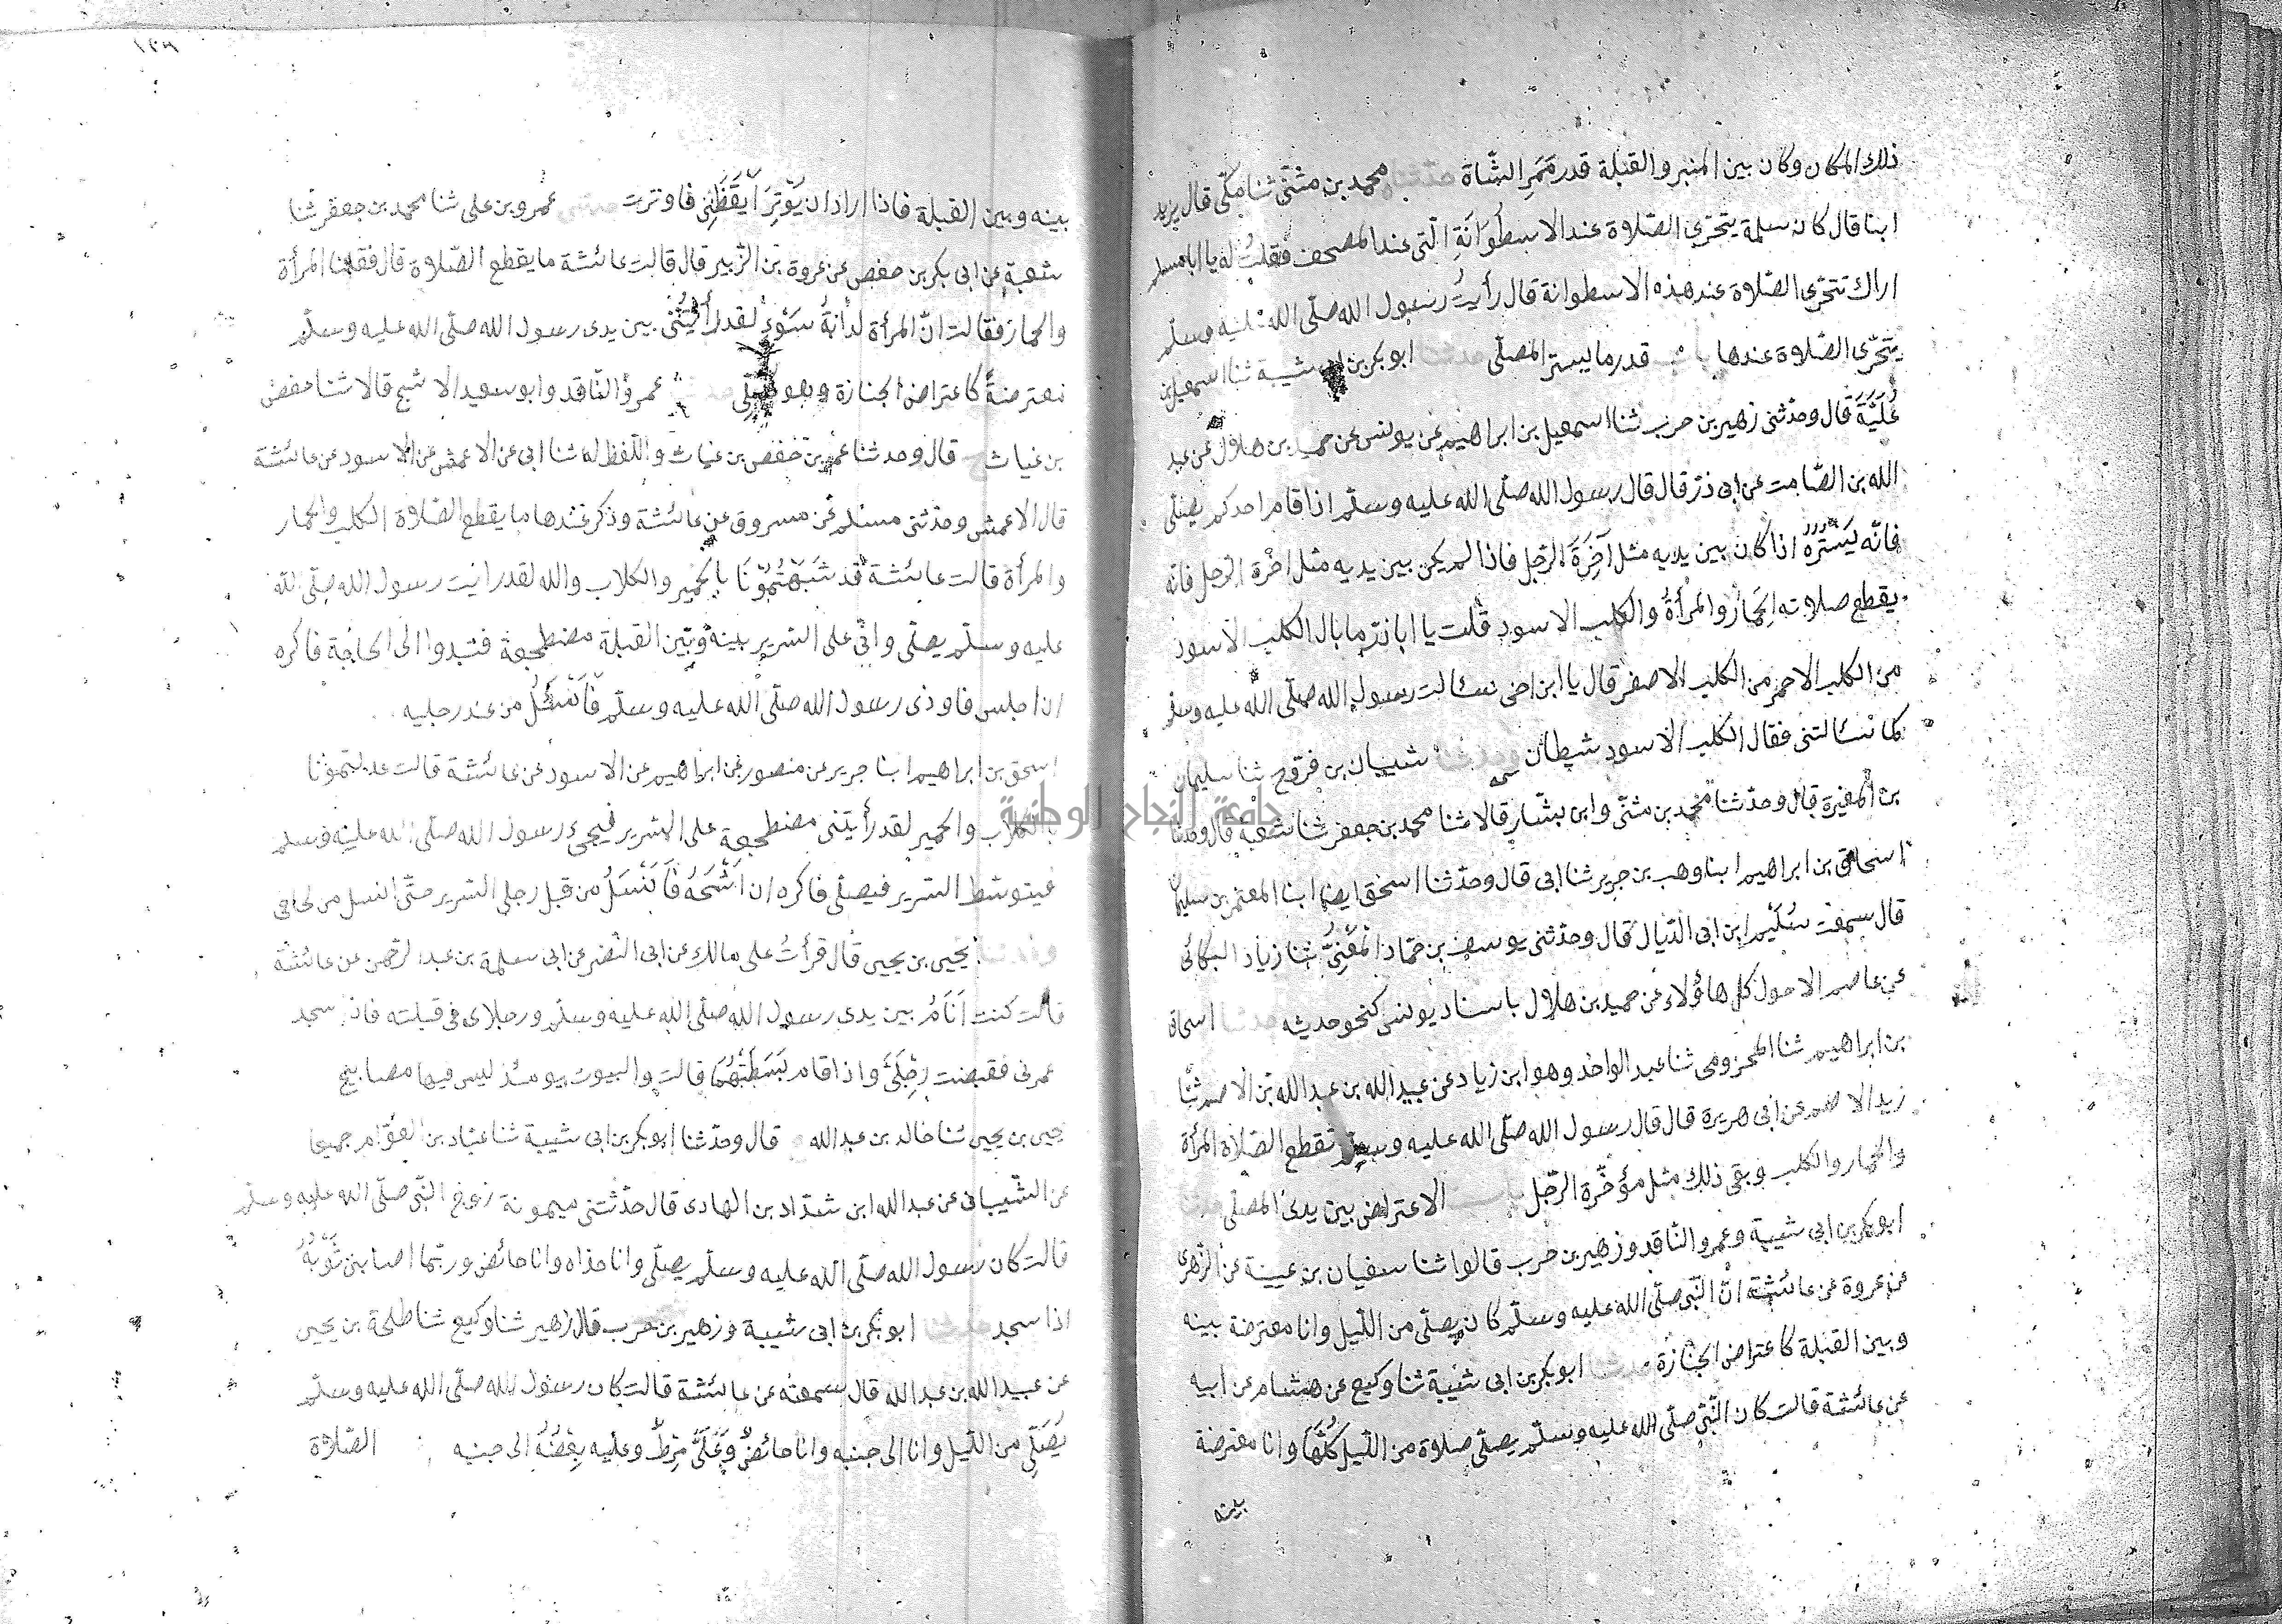 ذلك المكان وكان بين المنبر والقبلة قدر مَمَرِ الشّاة حدّثنا محمد بن مثنّى ثنا مكّى قال يزيد
ابنا قال كان سلمة يتحرّى الصّلاة عند الاسطُوَانَةِ الّتى عند المصحف فقلتُ له يا ابا مسلم
اراك تتحرّى الصّلاة عند هذه الاسطوانة قال رأيتُ رسول الله صلّى الله عليه وسلّم
يتحرّى الصّلاة عندها باب قدر ما يستر المصلّى حدثنا ابو بكر بن ابى شيبة ثنا اسمعيل بن
عُلَيَّةَ قال وحدّثنى زهير بن حرب ثنا اسمعيل بن ابراهيم عن يونس عن حميد بن هلال عن عبد
الله بن الصّامت عن ابى ذرّ قال قال رسول الله صلّى الله عليه وسلّم اذا قام احدكم يصلّى
فانّه يَسْتُرُهُ اذا كان بين يديه مثل آخِرَةِ الرّحل فاذا لم يكن بين يديه مثل اخرة الرحل فانّه
يقطع صلاته الحِمارُ والمرأةُ والكلب الاسود قلت يا ابا ذرّ ما بال الكلب الاسود
من الكلب الاحمر من الكلب الاصفر قال يا ابن اخى سئالت رسول الله صلّى الله عليه وسلّم
كما سئالتنى فقال الكلب الاسود شيطان وحدثنا شيبان بن فرّوخ ثنا سليمان
بن المغيرة قال وحدّثنا محمد بن مثنّى وابن بشّار قالا ثنا محمد بن جعفر ثنا شعبة قال وحدثنا
اسحاق بن ابراهيم ابنا وهب بن جرير ثنا ابى قال وحدّثنا اسحق ايضا ابنا المعتمر بن سليمان
قال سمعت سُلَيْم ابن ابى الذّيال قال وحدّثنى يوسف بن حمّاد المَعْنِىُّ ثنا زياد البكائى
عن عاصم الاحول كل هاؤلاء عن حميد بن هلال باسناد يونس كنحو حديثه حدثنا اسحاق
بن ابراهيم ثنا المخزومى ثنا عبد الواحد وهو ابن زياد عن عبيد الله بن عبد الله بن الاصم ثنا
يزيد الاصم عن ابى هريرة قال قال رسول الله صلّى الله عليه وسلّم تقطع الصّلاة المرأة
والحمار والكلب وبقى ذلك مثل مؤخّرة الرّحل باب الاعتراض بين يدى المصلّى حدثنا
ابو بكر بن ابى شيبة وعمرو النّاقد وزهير بن حرب قالوا ثنا سفيان بن عيينة عن الزّهرى
عن عروة عن عائشة انّ النّبى صلّى الله عليه وسلّم كان يصلّى من اللّيل وانا معترضة بينه
وبين القبلة كاعتراض الجنازة حدثنا ابو بكر بن ابى شيبة ثنا وكيع عن هشام عن ابيه
عن عائشة قالت كان النّبىّ صلّى الله عليه وسلّم يصلّى صلاة من اللّيل كُلَّهَا وانا معترضة
بينه
١٢٨
بينه وبين القبلة فاذا اراد ان يُوتِرَ اَيْقَظَنِى فاوترت حدثنى عمرو بن على ثنا محمد بن جعفر ثنا
شعبة عن ابى بكر بن حفص عن عروة بن الزّبير قال قالت عائشة ما يقطع الصّلاة قال فقلنا المرأة
والحمار فقالت انّ المرأة لدابّةُ سَوْءٍ لقد رأيتُنى بين يدى رسول الله صلّى الله عليه وسلّم
معترضةً كاعتراض الجنازة وهو يصلّى حدثنا عمرو النّاقد وابو سعيد الاشج قالا ثنا حفص
بن غياث ح قال وحدثنا عمر بن حفص بن غياث واللّفظ له ثنا ابى عن الاعمش عن الاسود عن عائشة
قال الاعمش وحدّثنى مسلم عن مسروق عن عائشة وذكر عندها ما يقطع الصّلاة الكلب والحمار
والمرأة قالت عائشة قد شَبَهْتُمُوْنَا بالحمير والكلاب والله لقد رايت رسول الله صلّى الله
عليه وسلّم يصلّى وانّى على السّرير بينه وبين القبلة مضطجعة فتبدوا الى الحاجة فاكره
ان اجلس فاوذى رسول الله صلّى الله عليه وسلّم فَاَنْسَلُّ من عند رجليه
اسحق بن ابراهيم ابنا جرير عن منصور عن ابراهيم عن الاسود عن عائشة قالت عدلتمونا
بالكلاب والحمير لقد رأيتنى مضطجعة على السّرير فيجئ رسول الله صلّى الله عليه وسلم
فيتوسّط السّرير فيصلّى فاكره ان اَسْنَحَهُ فَاَنْسَلُّ من قبل رجلى السّرير حتّى انسل من لحافى
وحدثنا يحيى بن يحيى قال قرأتُ على مالك عن ابى النّضر عن ابى سلمة بن عبد الرّحمن عن عائشة
قالت كنت اَنَامُ بين يدى رسول الله صلّى الله عليه وسلّم ورجلاى فى قبلته فاذا سجد
غمزنى فقبضت رِجْلَىَّ واذا قام بَسَطْتُهُمَا قالت والبيوت يومئذ ليس فيها مصابيح
يحيى بن يحيى ثنا خالد بن عبد الله قال وحدّثنا ابو بكر بن ابى شيبة ثنا عبّاد بن العوّام جميعا
عن الشّيبانى عن عبد الله ابن شدّاد بن الهادى قال حدّثتنى ميمونة زوج النّبى صلّى الله عليه وسلّم
قالت كان رسول الله صلّى الله عليه وسلّم يصلّى وانا حذاه وانا حائض وربّما اصابنى ثَوْبُهُ
اذا سجد حدثنا ابو بكر بن ابى شيبة وزهير بن حرب قال زهير ثنا وكيع ثنا طلحة بن يحيى
عن عبيد الله بن عبد الله قال سمعته عن عائشة قالت كان رسول الله صلّى الله عليه وسلّم
يُصَلِّى من اللّيل وانا الى جنبه وانا حائضٌ وَعَلَىَّ مِرْطٌ وعليه بعضُهُ الى جنبه الصّلاة
جامعة النجاح الوطنية